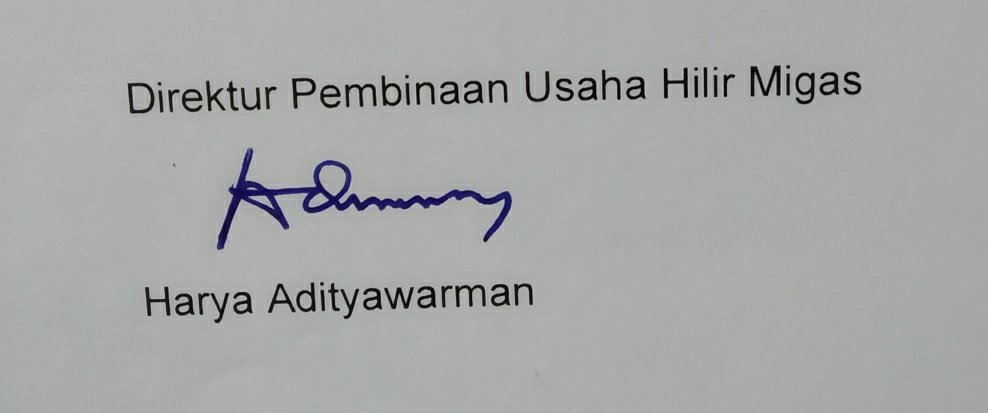 Direktur Pembinaan Usaha Hilir Migas
Harya Adityawarman